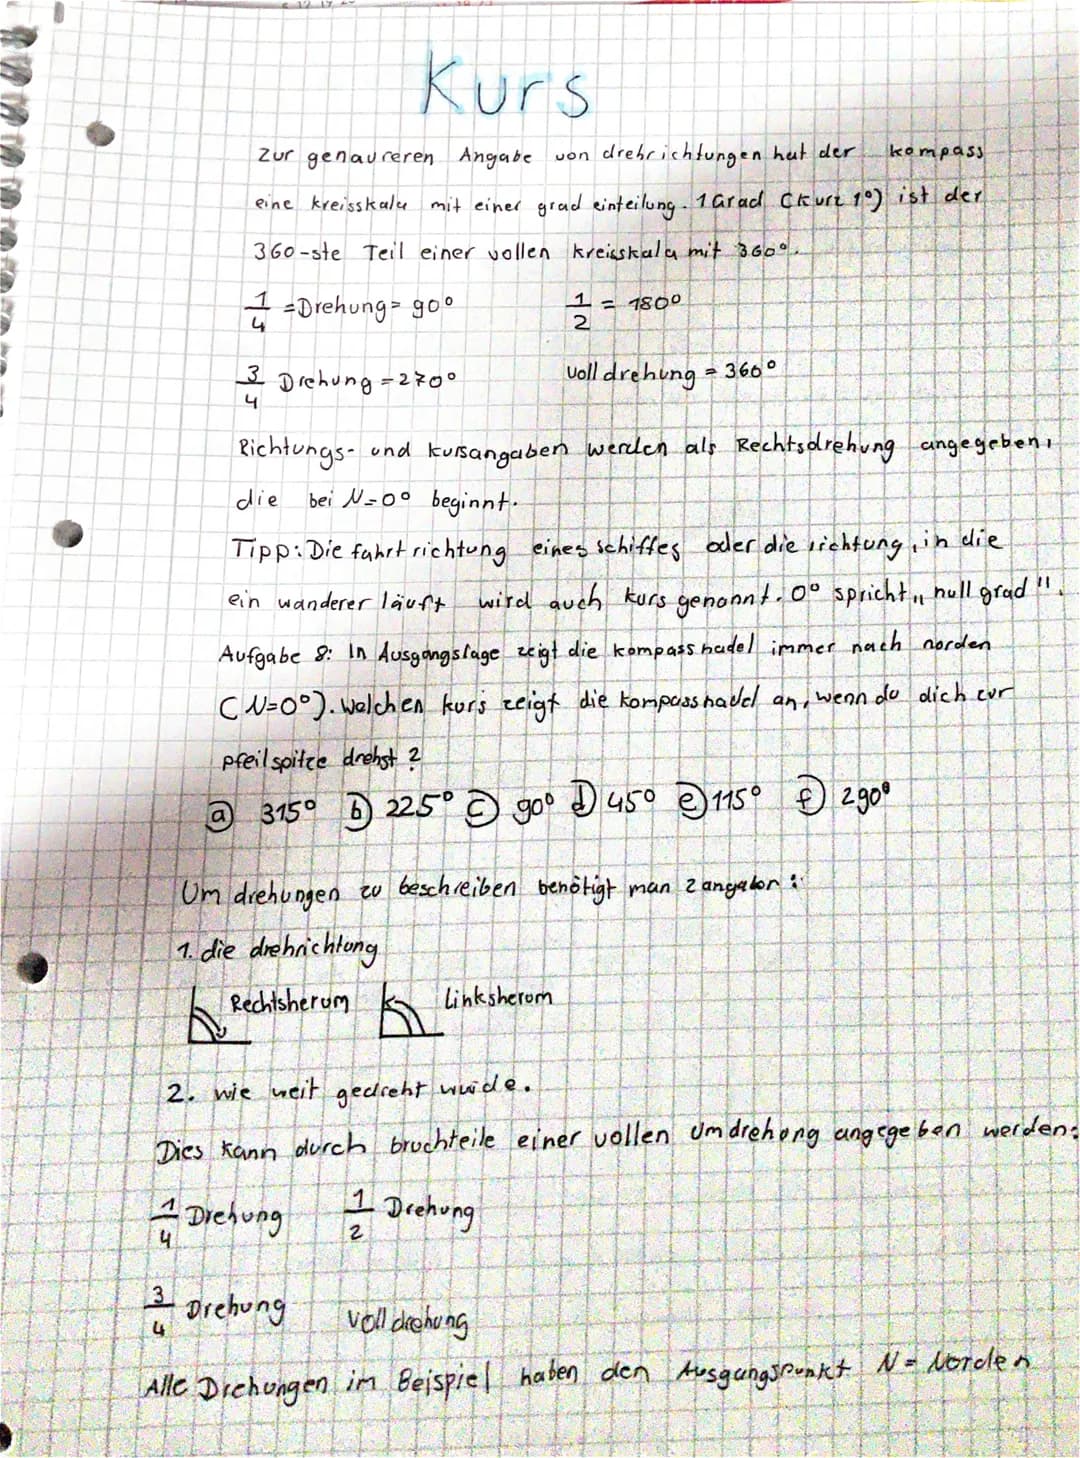 Kurs
Zur genaureren Angabe von drehrichtungen hat der kompass
eine kreisskala mit einer grad einteilung. 1 Grad (kurz 1°) ist der
360-ste Teil einer vollen kreisskala mit 360°.
1/4 = Drehung = 90° 1/2 = 180°
3/4 Drehung = 270° Voll drehung = 360°
Richtungs- und kursangaben werden als Rechtsdrehung angegeben,
die bei N=0° beginnt.
Tipp: Die fahrt richtung eines schiffes oder die richtung, in die
ein wanderer läuft wird auch kurs genannt. 0° spricht „null grad".
Aufgabe 8: In Ausgangslage zeigt die kompass nadel immer nach norden
(N=0°). Welchen kurs zeigt die kompassnadel an, wenn du dich zur
pfeilspitze drehst?
a) 315° b) 225° c) 90° d) 45° e) 115° f) 290°
Um drehungen zu beschreiben benötigt man 2 angaben:
1. die drehrichtung
Rechtsherum Linksherum
2. wie weit gedreht wurde.
Dies kann durch bruchteile einer vollen Umdrehung angegeben werden:
1/4 Drehung 1/2 Drehung
3/4 Drehung Voll drehung
Alle Drehungen im Beispiel haben den Ausgangspunkt N = Norden